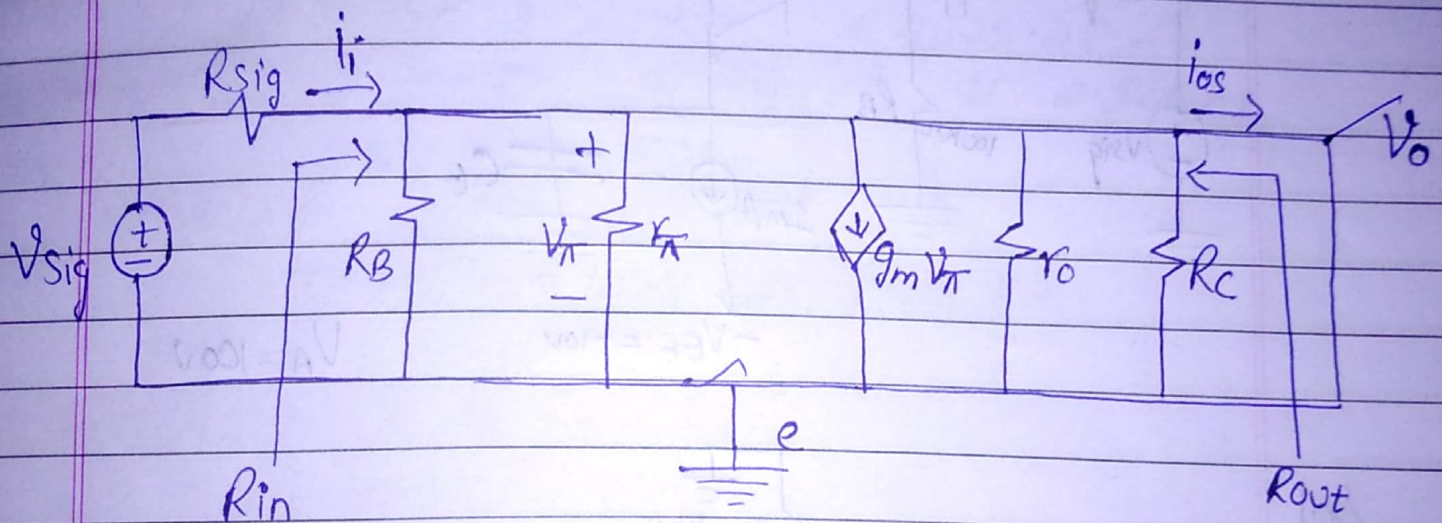 Rsig
ii
ios
Vo
+
Vsig
+
−
RB
Vπ
rπ
gmVπ
ro
RC
−
e
Rin
Rout